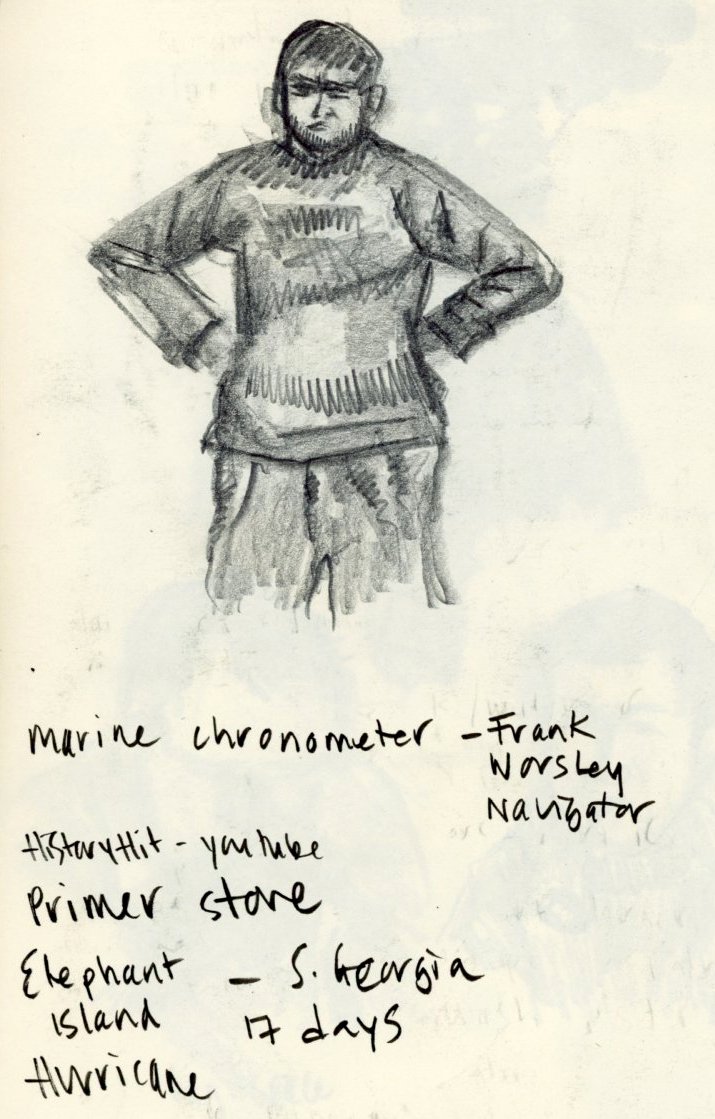 Marine chronometer – Frank
Worsley
Navigator
HistoryHit – youtube
Primer stove
Elephant – S. Georgia
Island 17 days
Hurricane